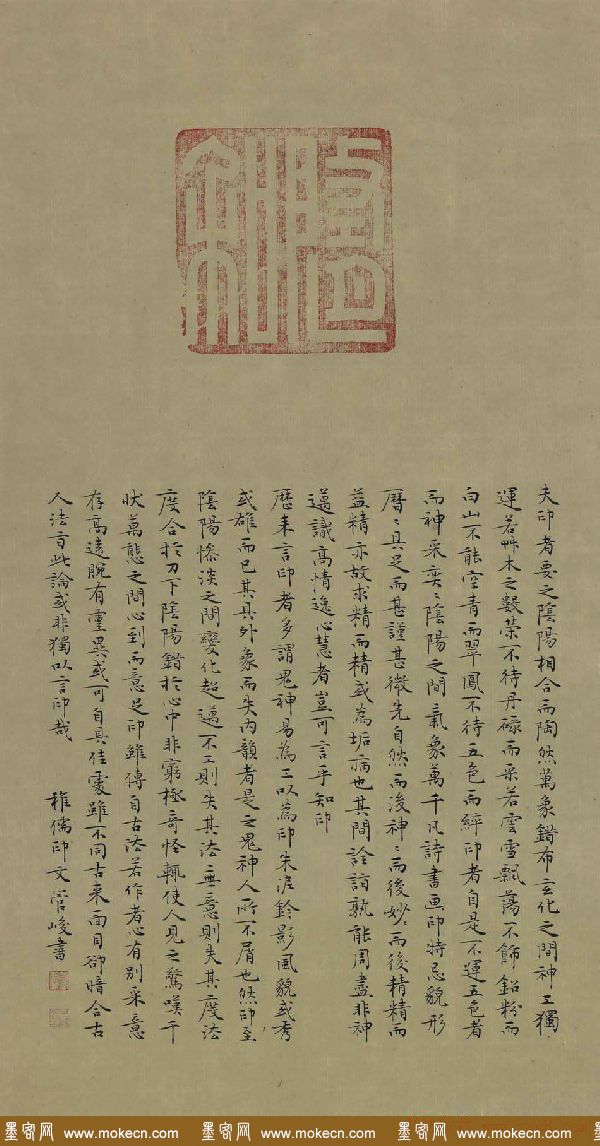 夫印者要之陰陽相合而陶然萬象錯布玄化之間神工獨
運若艸木之敷榮不待丹碌而采若雲雪飄蕩不飾鉛粉而
白山不能空青而翠鳳不待五色而綷印者自是不運五色者
而神采奕〻陰陽之間氣象萬千凡詩書画印特忌貌形
曆〻具足而甚謹甚微先自然而後神〻而後妙〻而後精精而
益精亦故求精而精或為垢病也其間詮詣孰能周盡非神
邁識高情逸心慧者豈可言乎知印
歷來言印者多謂鬼神易為三以為印朱泥鈐影風貌或秀
或雄而已其具外象而失內韻者是之鬼神人所不屑也然印至
陰陽慘淡之間變化超邁不工則失其法無意則失其度法
度合於刀下陰陽錯於心中非窮極奇怪輒使人見之驚嘆千
狀萬態之間心到而意足印雖傳自古法若作者心有別采意
存高遠腕有靈異或可自具佳處雖不同古來面目卻暗合古
人法言此論或非獨以言印哉
稚儒印文管峻書
墨客网 www.mokecn.com 墨客网 www.mokecn.com 墨客网 www.mokecn.com 墨客网